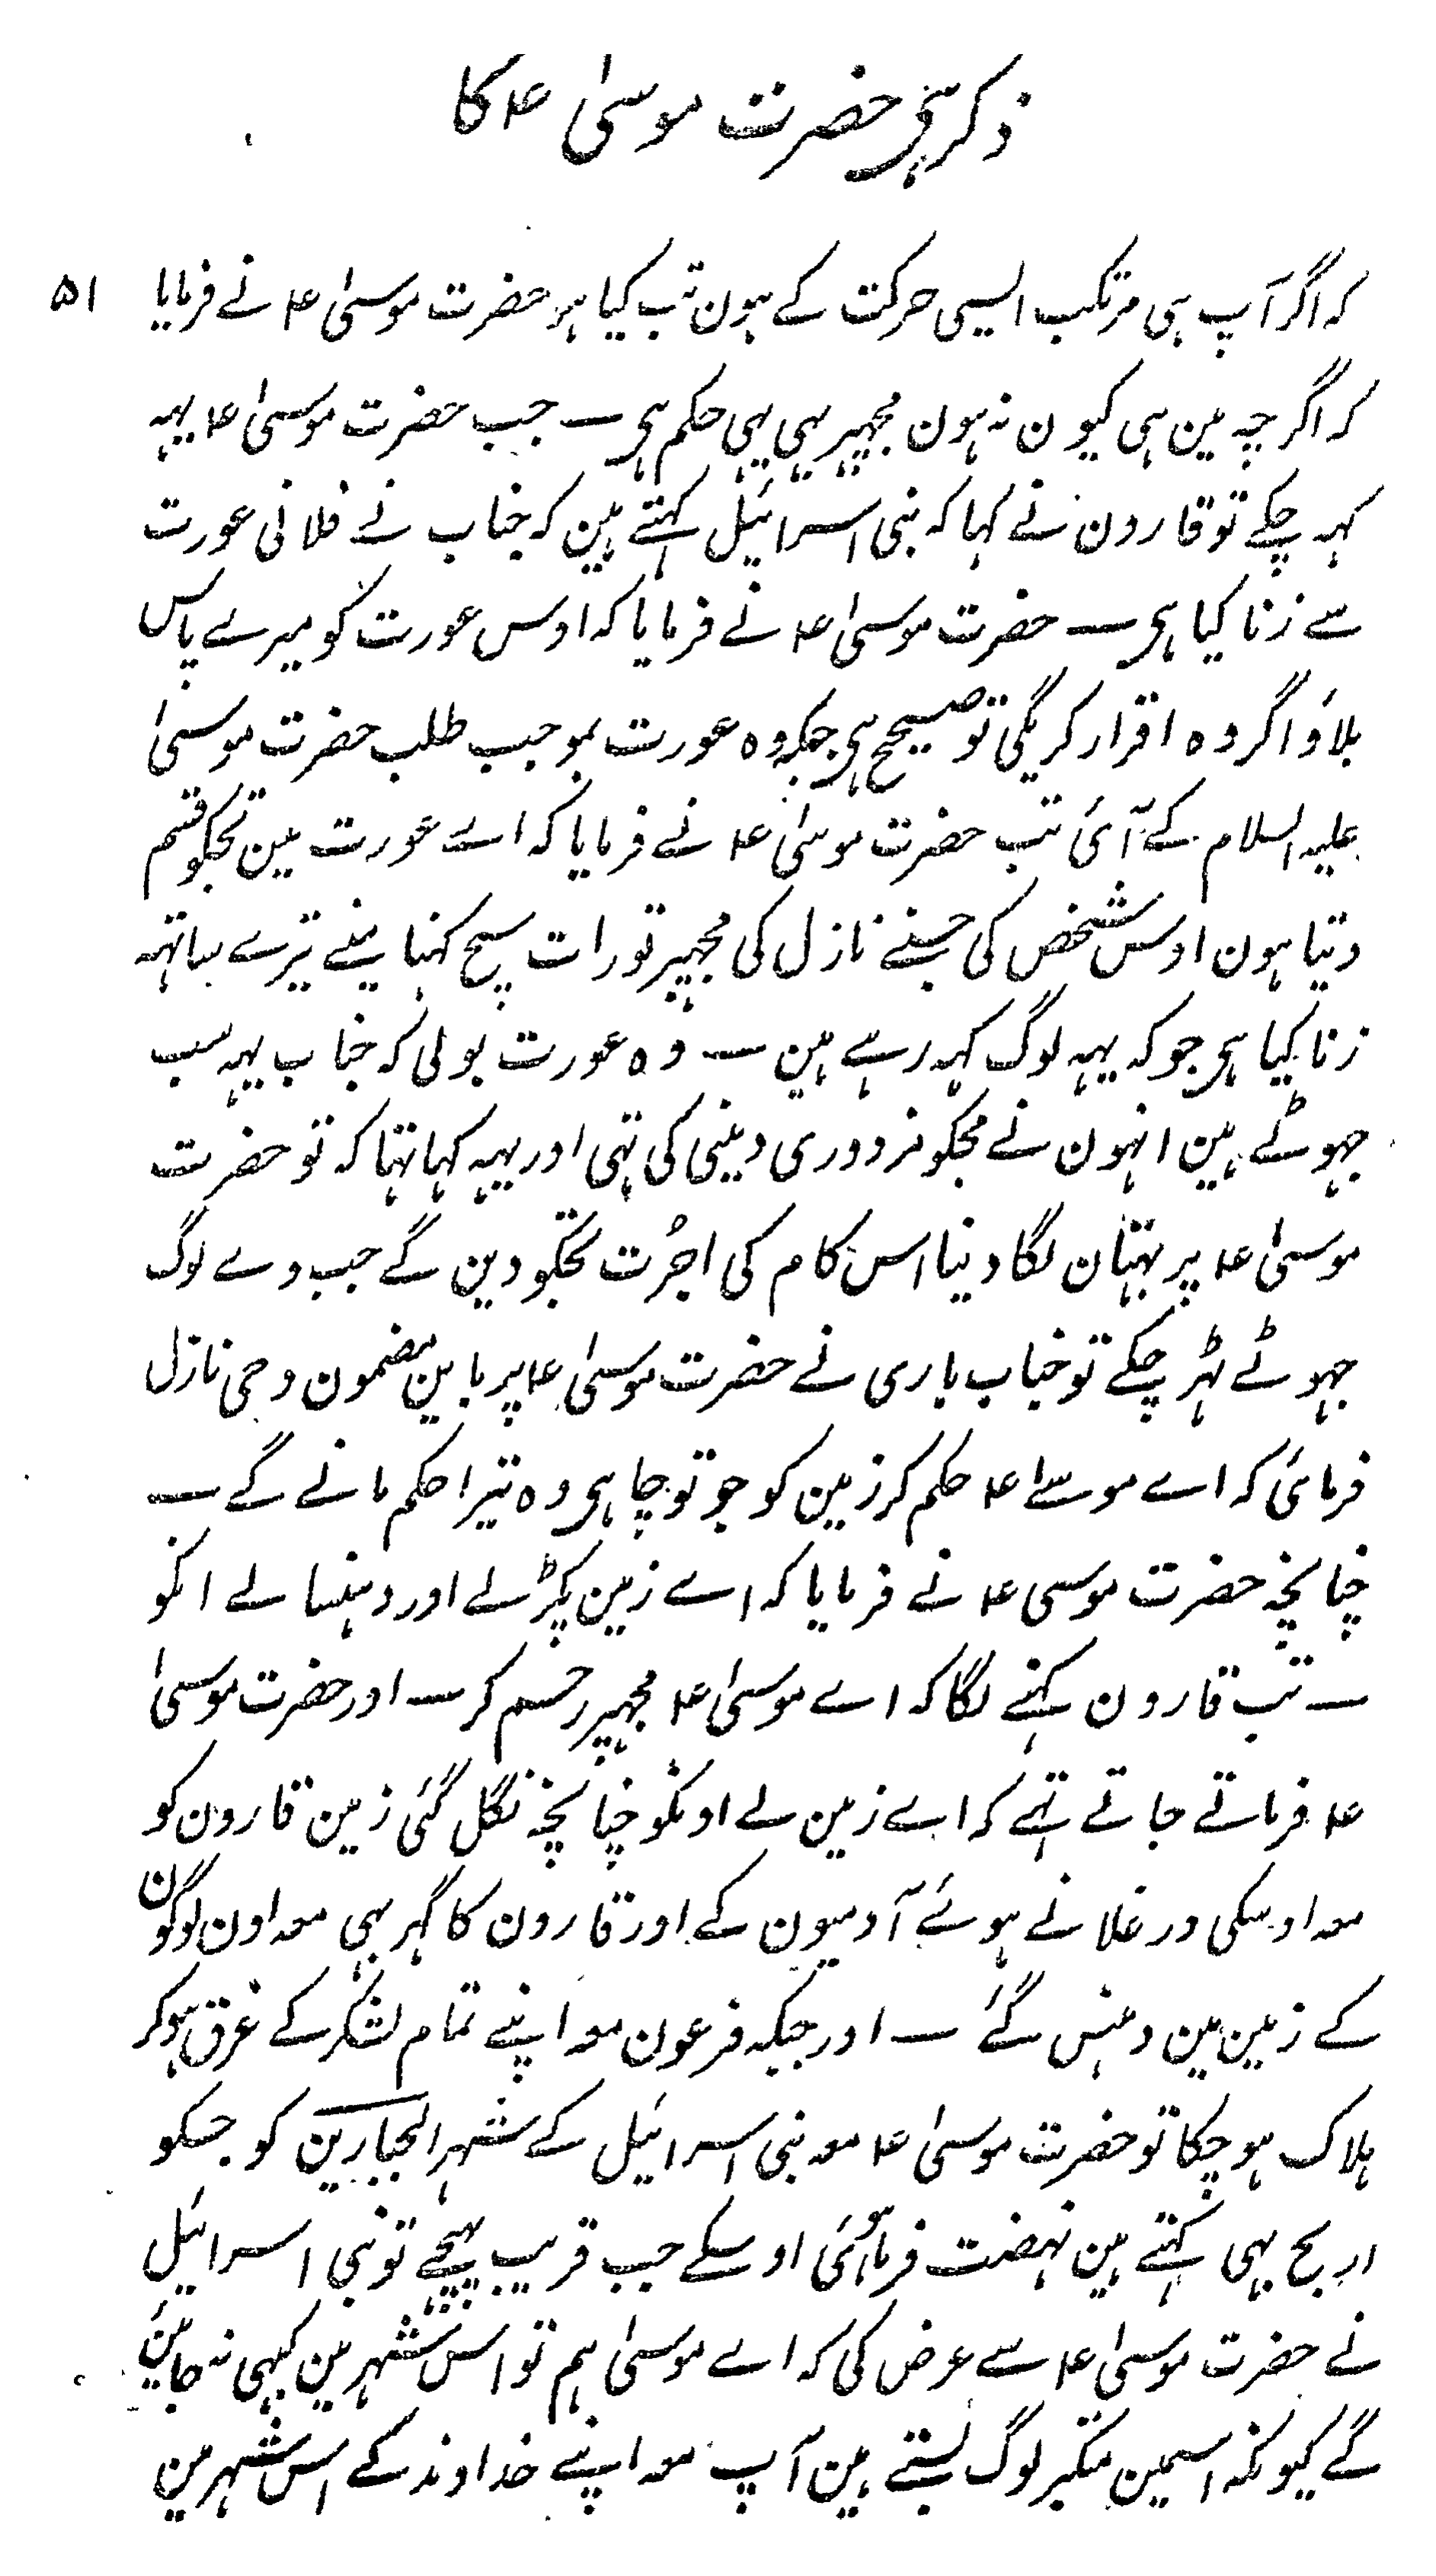 ذکر ہی حضرت موسیٰ ۴ کا
کہ اگر آپ ہی مرتکب ایسی حرکت کے ہون تب کیا ہو حضرت موسیٰ ۴ نے فرمایا ۵۱
کہ اگر چہ مین ہی کیون نہ ہون مجہپر بہی یہی حکم ہی ــ جب حضرت موسیٰ ۴ یہہ
کہہ چکے تو قارون نے کہا کہ بنی اسرائیل کہتے ہین کہ جناب نے فلانی عورت
سے زنا کیا ہی ــ حضرت موسیٰ ۴ نے فرمایا کہ اوس عورت کو میرے پاس
بلاؤ اگر وہ اقرار کریگی تو صحیح ہی جبکہ وہ عورت بموجب طلب حضرت موسیٰ
علیہ السلام کے آئی تب حضرت موسیٰ ۴ نے فرمایا کہ اے عورت مین تجکو قسم
دیتا ہون اوس شخص کی جسنے نازل کی مجہپر تورات سچ کہنا مینے تیرے ساتہہ
زنا کیا ہی جو کہ یہہ لوگ کہہ رہے ہین ــ وہ عورت بولی کہ جناب یہہ سب
جہوٹے ہین انہون نے مجکو مزدوری دینی کی تہی اور یہہ کہا تہا کہ تو حضرت
موسیٰ ۴ پر بہتان لگا دینا اس کام کی اجرُت تجکو دین گے جب وے لوگ
جہوٹے ٹہر چکے تو جناب باری نے حضرت موسیٰ ۴ پر باین مضمون وحی نازل
فرمائی کہ اے موسےٰ ۴ حکم کر زمین کو جو تو چاہی وہ تیرا حکم مانے گے ــ
چنانچہ حضرت موسی ۴ نے فرمایا کہ اے زمین پکڑ لے اور دہنسا لے انکو
ــ تب قارون کہنے لگا کہ اے موسیٰ ۴ مجہپر رحم کر ــ اور حضرت موسیٰ
۴ فرماتے جاتے تہے کہ اے زمین لے اونکو چنانچہ نگل گئی زمین قارون کو
معہ اوسکی ورغلانے ہوئے آدمیون کے اور قارون کا گہر بہی معہ اون لوگون
کے زمین مین دہنس گئے ــ اور جبکہ فرعون معہ اپنے تمام لشکر کے غرق ہوکر
ہلاک ہو چکا تو حضرت موسیٰ ۴ معہ بنی اسرائیل کے شہر الجبارین کو جسکو
اریح بہی کہتے ہین نہضت فرما ہوئی اوسکے جب قریب پہنچے تو بنی اسرائیل
نے حضرت موسیٰ ۴ سے عرض کی کہ اے موسیٰ ہم تو اس شہر مین کبہی نہ جائین
گے کیونکہ اسمین متکبر لوگ بستے ہین آپ معہ اپنے خداوند کے اس شہر مین